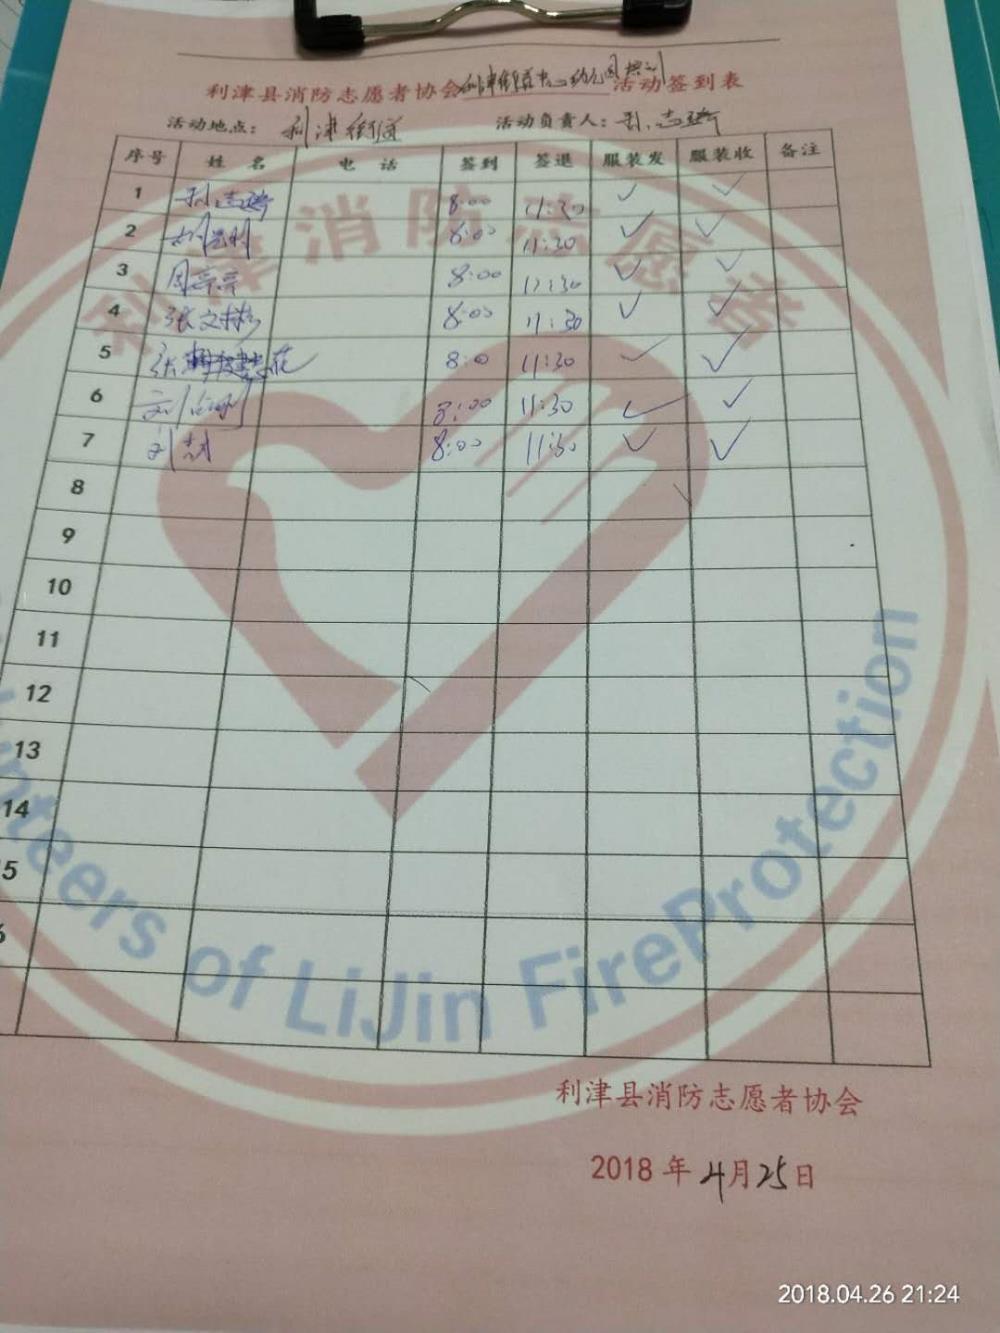 利津县消防志愿者协会利津街道中心幼儿园培训活动签到表
活动地点：利津街道 活动负责人：
序号 姓名 电话 签到 签退 服装发 服装收 备注
1 8:00 11:30 ✓ ✓
2 8:00 11:30 ✓ ✓
3 周亭亭 8:00 11:30 ✓ ✓
4 张文彬 8:00 11:30 ✓ ✓
5 张 花 8:0 11:30 ✓ ✓
6 刘 8:00 11:30 ✓ ✓
7 刘 8:00 11:30 ✓ ✓
8
9
10
11
12
13
14
5
6
利津消防志愿者
nteers of LiJin FireProtection
利津县消防志愿者协会
2018 年 4月25日
2018.04.26 21:24